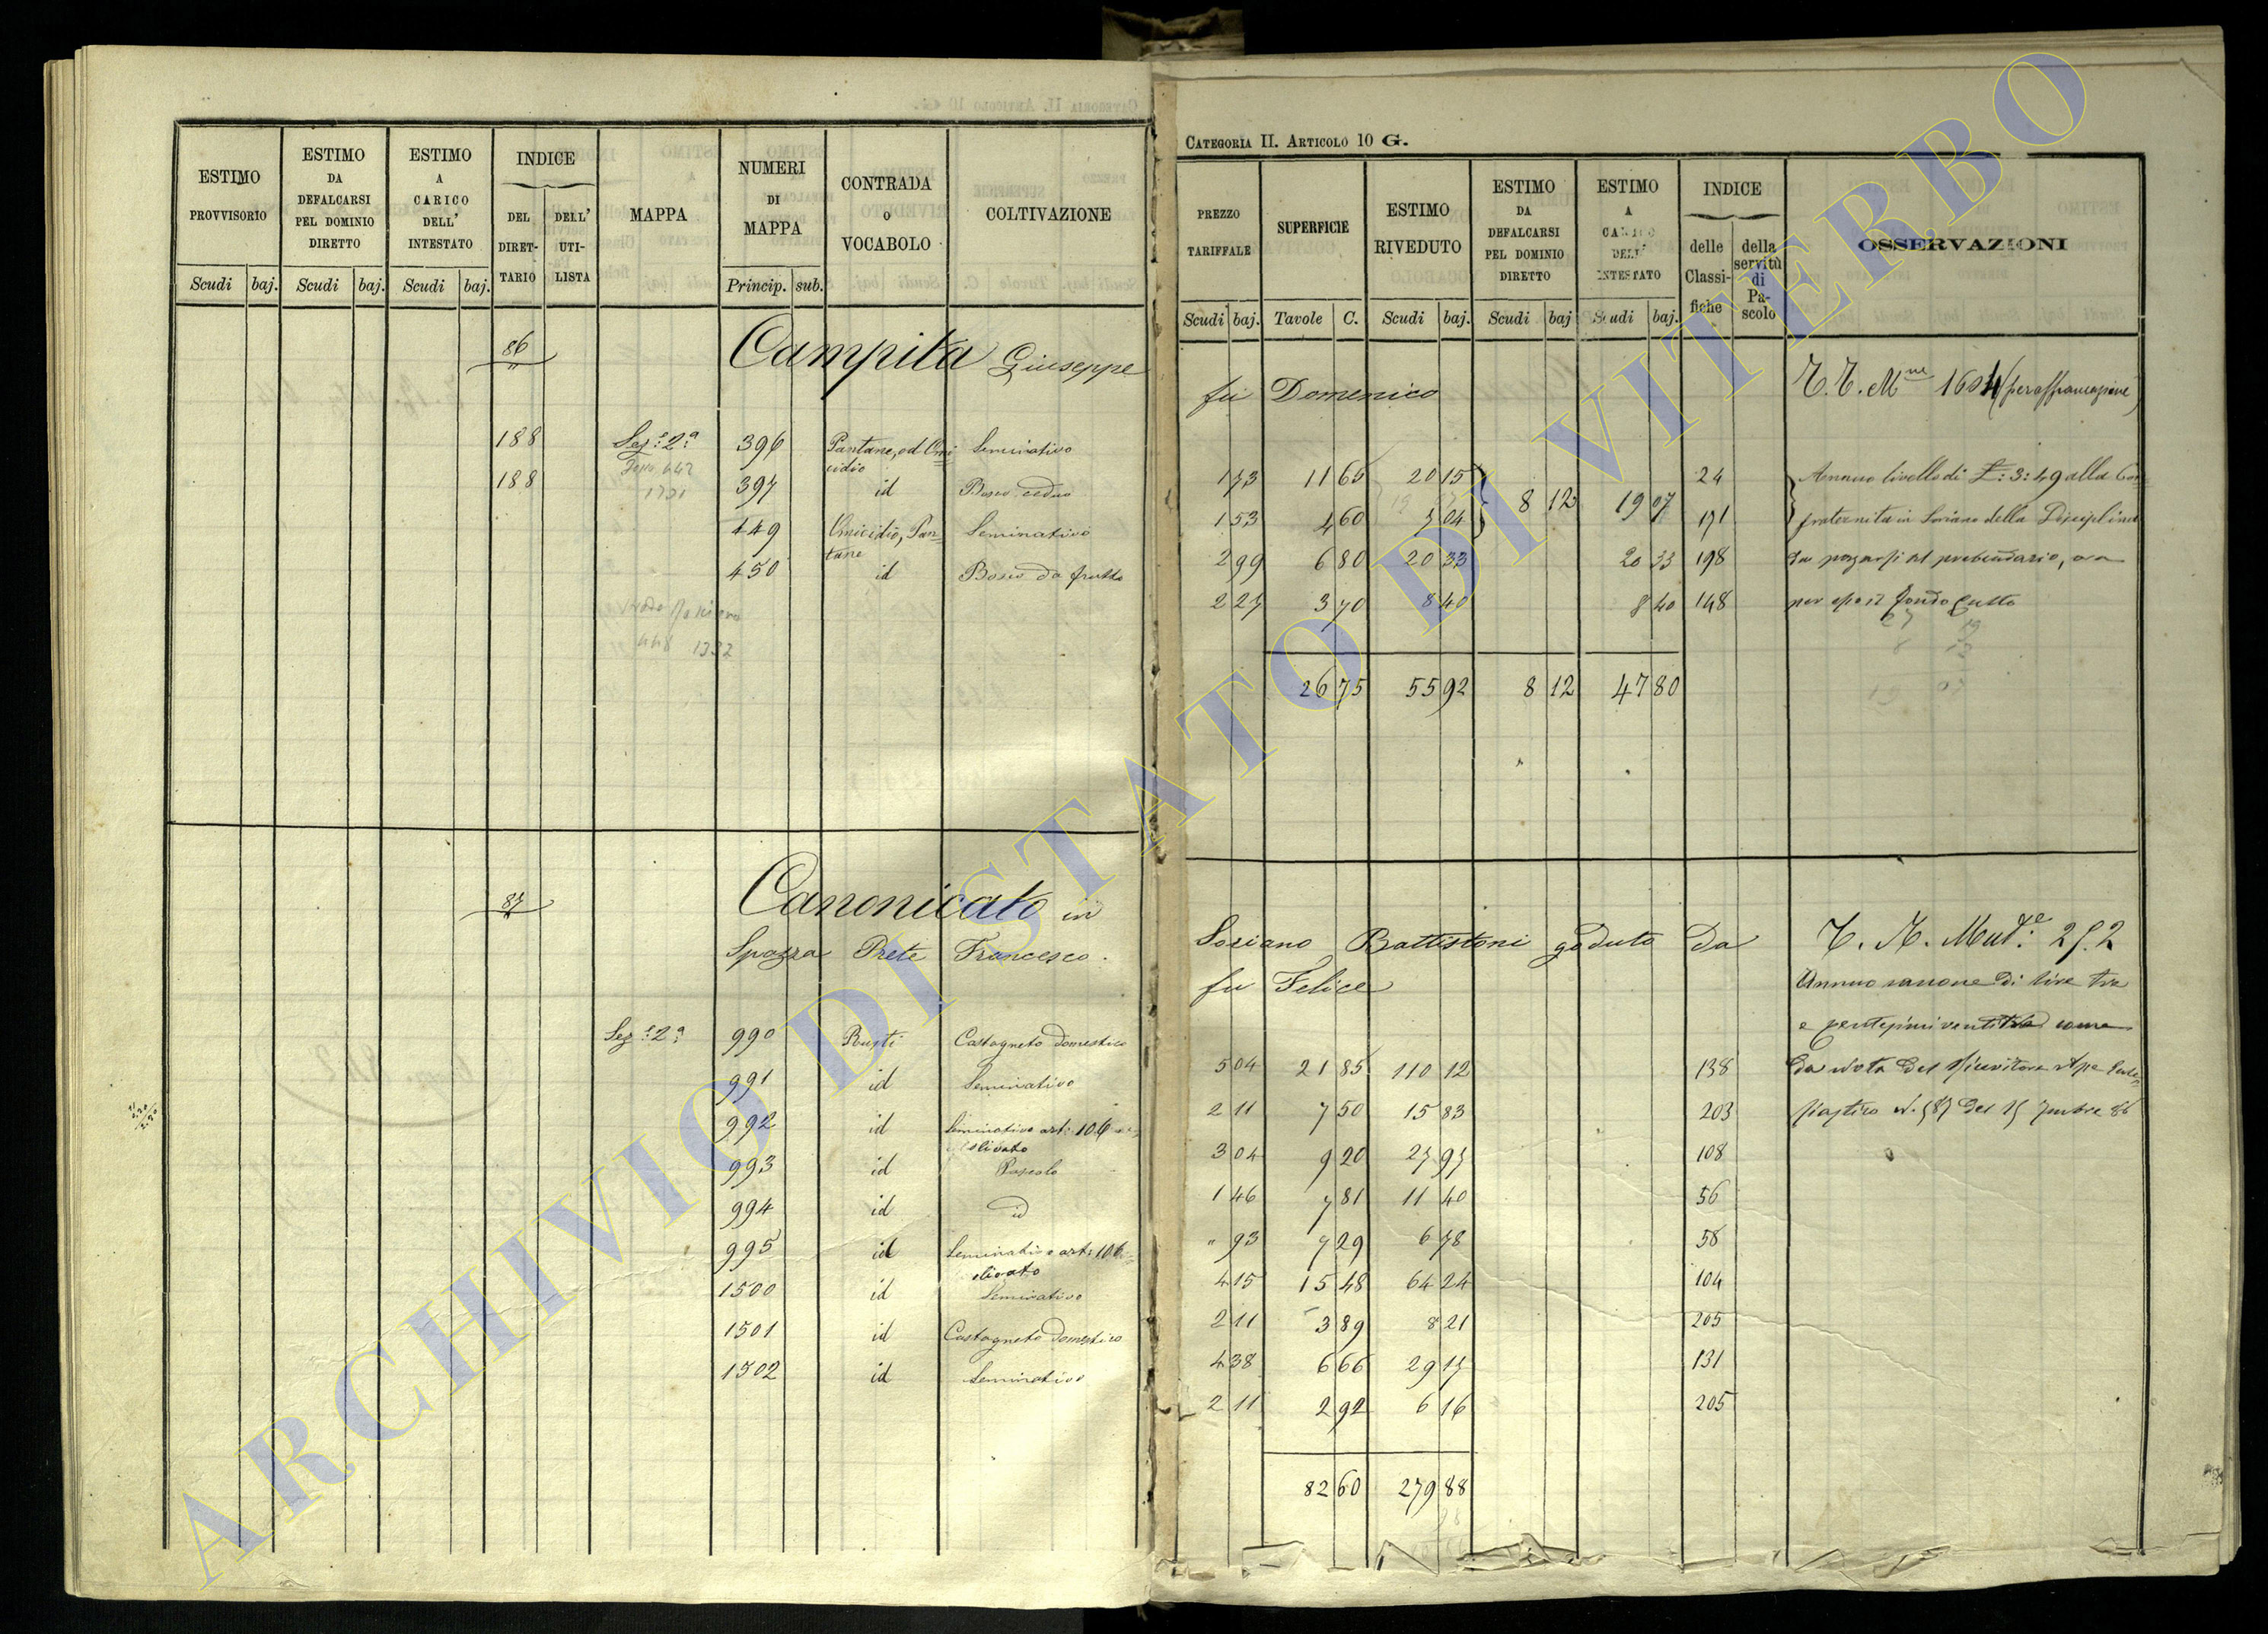 CATEGORIA II. ARTICOLO 10 G.
ESTIMO PROVVISORIO
ESTIMO DA DEFALCARSI PEL DOMINIO DIRETTO
ESTIMO A CARICO DELL' INTESTATO
INDICE
DEL DIRET-TARIO
DELL' UTI-LISTA
MAPPA
NUMERI DI MAPPA
CONTRADA o VOCABOLO
COLTIVAZIONE
Scudi baj. Scudi baj. Scudi baj. Princip. sub.
PREZZO TARIFFALE
SUPERFICIE
ESTIMO RIVEDUTO
ESTIMO DA DEFALCARSI PEL DOMINIO DIRETTO
ESTIMO A CARICO DELL' INTESTATO
INDICE
delle Classi-fiche
della servitù di Pa-scolo
OSSERVAZIONI
Scudi baj. Tavole C. Scudi baj. Scudi baj Scudi baj.
86 Campita Giuseppe
fu Domenico
188 Sez.e 2a 396 Pantane, od Omi-cidio Seminativo
188 397 id Bosco ceduo
449 Omicidio, Pan-tane Seminativo
450 id Bosco da frutto
1 73 11 65 20 15 24
1 53 4 60 7 04 8 12 19 07 171
2 99 6 80 20 33 20 33 198
2 27 3 70 8 40 8 40 148
26 75 55 92 8 12 47 80
Annuo livello di £: 3: 49 alla Con-
fraternita in Soriano della Disciplina
da pagarsi al prebendario, ora
per esso il fondo Culto
87 Canonicato in
Soriano Battistoni goduto da
Spazza Prete Francesco
fu Felice
Annuo canone di lire tre
Sez.e 2a 990 Rusti Castagneto domestico
991 id Seminativo
992 id Seminativo art: 106 olivato
993 id Pascolo
994 id id
995 id Seminativo art: 106 olivato
1500 id Seminativo
1501 id Castagneto domestico
1502 id Seminativo
5 04 21 85 110 12 138
2 11 7 50 15 83 203
3 04 9 20 27 97 108
1 46 7 81 11 40 56
" 93 7 29 6 78 58
4 15 15 48 64 24 104
2 11 3 89 8 21 205
4 38 6 66 29 17 131
2 11 2 92 6 16 205
82 60 279 88
ARCHIVIO DI STATO DI VITERBO